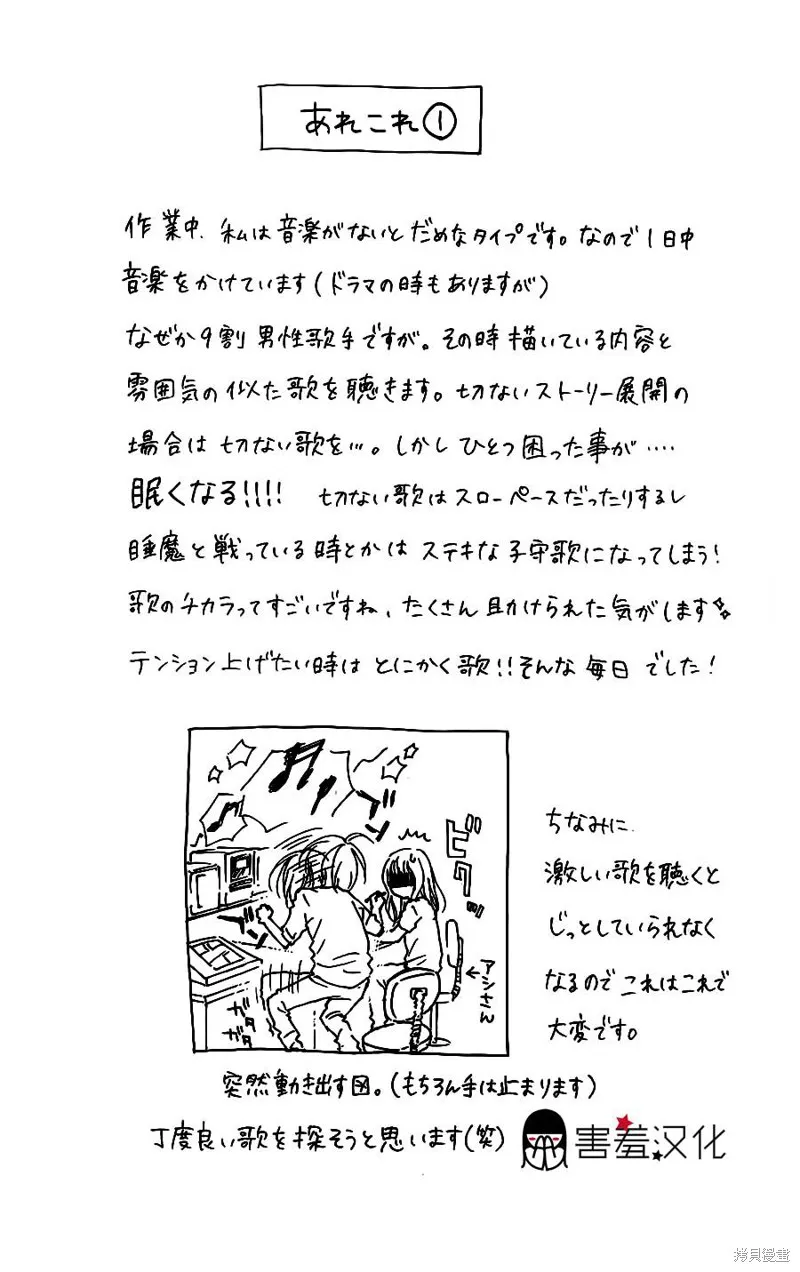 あれこれ①
作業中、私は音楽がないとだめなタイプです。なので1日中
音楽をかけています(ドラマの時もありますが)
なぜか9割男性歌手ですが。その時描いている内容と
雰囲気の似た歌を聴きます。切ないストーリー展開の
場合は切ない歌を…。しかしひとつ困った事が‥‥
眠くなる!!!! 切ない歌はスローペースだったりするし
睡魔と戦っている時とかはステキな子守歌になってしまう!
歌のチカラってすごいですね、たくさん助けられた気がします
テンション上げたい時はとにかく歌!!そんな毎日でした!
ブン
ビクッ
ブン
アシさん
ガタ
ガタ
ちなみに
激しい歌を聴くと
じっとしていられなく
なるのでこれはこれで
大変です。
突然動き出す図。(もちろん手は止まります)
丁度良い歌を探そうと思います(笑)
害羞汉化
拷貝漫畫